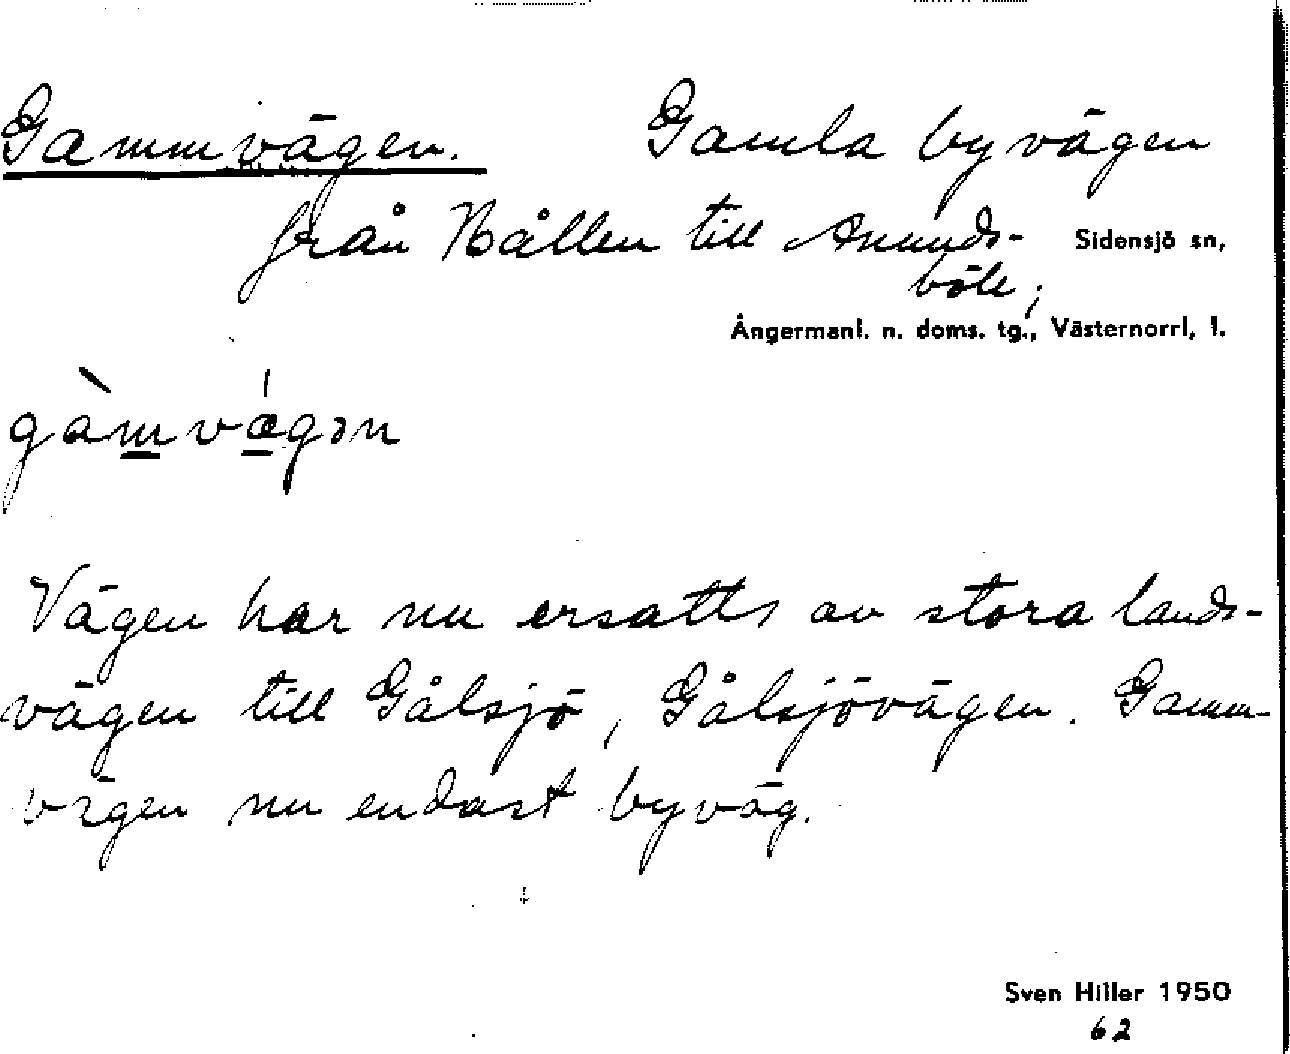 Gammvägen. Gamla byvägen
från Hållen till Anunds- Sidensjö sn,
böle;
Ångermanl. n. doms. tg., Västernorrl, l.
gàmvǽgən
Vägen har nu ersatts av stora lands-
vägen till Gålsjö, Gålsjövägen. Gamm-
vägen nu endast byväg.
Sven Hiller 1950
62